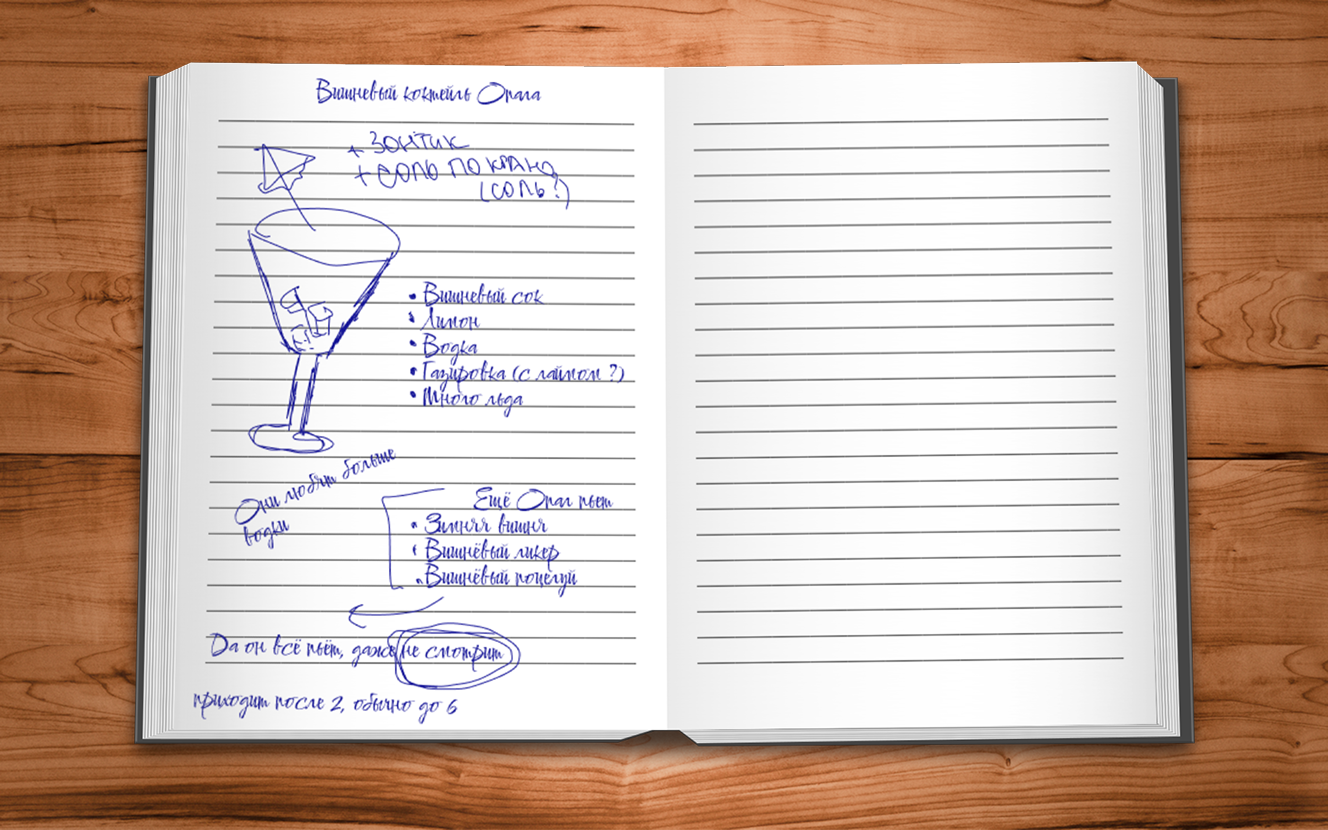 Вишневый коктейль Опала
+ ЗОНТИК
+ СОЛЬ ПО КРАЮ
(СОЛЬ?)
• Вишневый сок
• Лимон
• Водка
• Газировка (с лаймом?)
• Много льда
Они любят больше
водки
Ещё Опал пьет
• Зимняя вишня
• Вишнёвый ликер
• Вишнёвый поцелуй
Да он всё пьёт, даже не смотрит
приходит после 2, обычно до 6